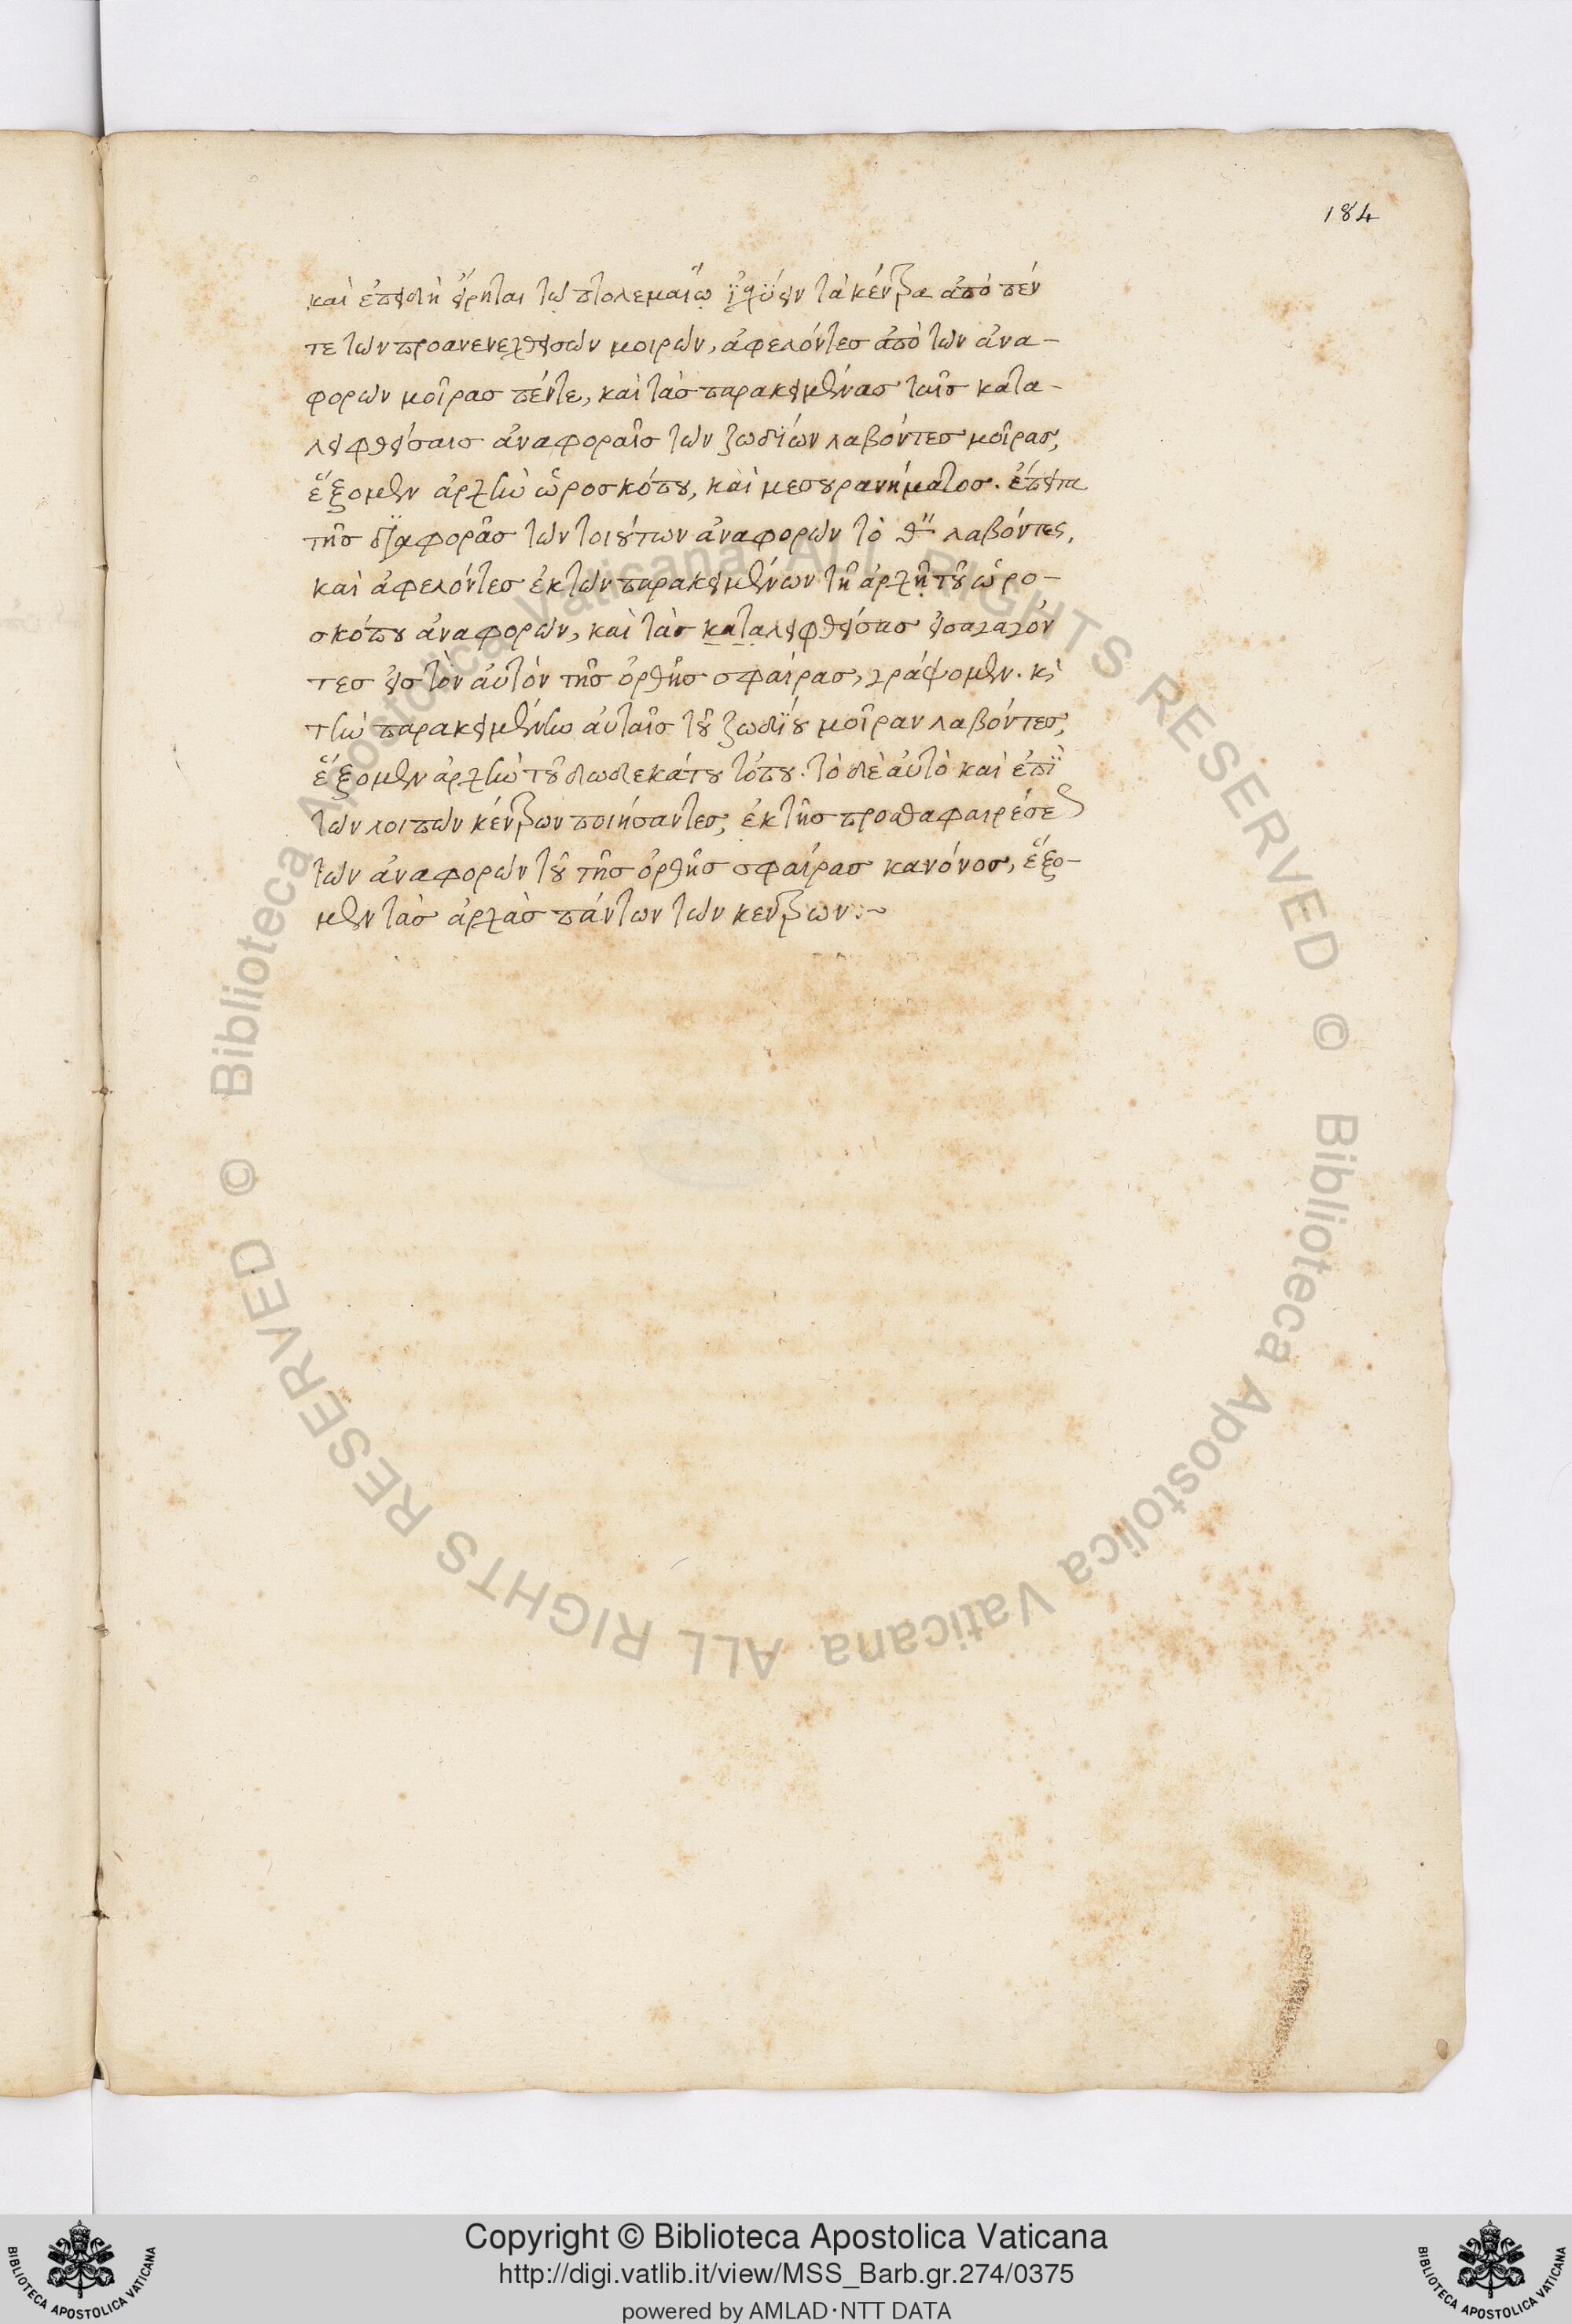 184
καὶ ἐπειδὴ εἴρηται τῷ πτολεμαίῳ ἰσχύειν τὰ κέντρα ἀπὸ πέν
τε τῶν προανενεχθεισῶν μοιρῶν, ἀφελόντες ἀπὸ τῶν ἀνα-
φορῶν μοῖρας πέντε, καὶ τὰς παρακειμένας ταῖς κατα-
λειφθείσαις ἀναφοραῖς τῶν ζωδίων λαβόντες μοῖρας,
ἕξομεν ἀρχὴν ὡροσκόπου, καὶ μεσουρανήματος. ἔπειτα
τῆς διαφορᾶς τῶν τοιούτων ἀναφορῶν τὸ λαβόντες,
καὶ ἀφελόντες ἐκ τῶν παρακειμένων τῇ ἀρχῇ τοῦ ὡρο-
σκόπου ἀναφορῶν, καὶ τὰς καταλειφθείσας εἰσαγαγόν
τες εἰς τὸν αὐτὸν τῆς ὀρθῆς σφαίρας, γράψομεν. κὶ
τὴν παρακειμένην αὐταῖς τοῦ ζωδίου μοῖραν λαβόντες,
ἕξομεν ἀρχὴν τοῦ δωδεκάτου τόπου. τὸ δὲ αὐτὸ καὶ ἐπὶ
τῶν λοιπῶν κέντρων ποιήσαντες, ἐκ τῆς προσθαφαιρέσε
τῶν ἀναφορῶν τοῦ τῆς ὀρθῆς σφαίρας κανόνος, ἕξο-
μεν τὰς ἀρχὰς πάντων τῶν κέντρων:~
© Biblioteca Apostolica Vaticana ALL RIGHTS RESERVED © Biblioteca Apostolica Vaticana ALL RIGHTS RESERVED
BIBLIOTECA APOSTOLICA VATICANA
Copyright © Biblioteca Apostolica Vaticana
http://digi.vatlib.it/view/MSS_Barb.gr.274/0375
powered by AMLAD·NTT DATA
BIBLIOTECA APOSTOLICA VATICANA